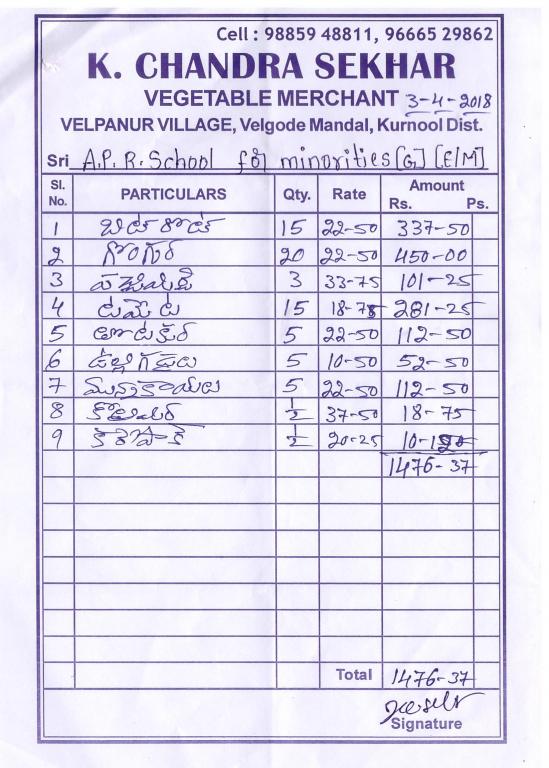 Cell : 98859 48811, 96665 29862
K. CHANDRA SEKHAR
VEGETABLE MERCHANT 3-4-2018
VELPANUR VILLAGE, Velgode Mandal, Kurnool Dist.
Sri A.P.R. School for minorities [G] [E/M]
Sl. No. PARTICULARS Qty. Rate Amount Rs. Ps.
1 15 22-50 337-50
2 గోంగూర 20 22-50 450-00
3 పచ్చిమిర్చి 3 33-75 101-25
4 టమోట 15 18-75 281-25
5 తోటకూర 5 22-50 112-50
6 ఉల్లిగడ్డలు 5 10-50 52-50
7 మునక్కాయలు 5 22-50 112-50
8 కొత్తిమీర ½ 37-50 18-75
9 కరివేపాకు ½ 20-25
1476-37
Total 1476-37
Signature